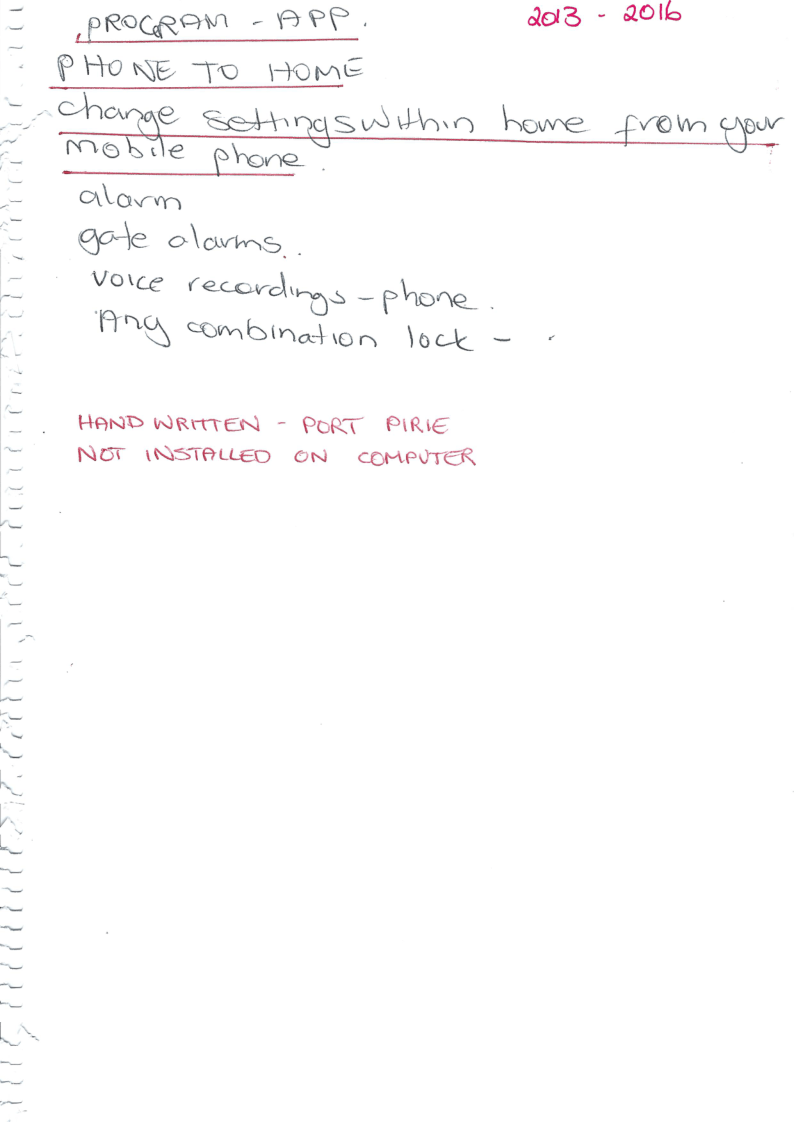 PROGRAM - APP.
2013 - 2016
PHONE TO HOME
change settings within home from your
mobile phone.
alarm
gate alarms..
voice recordings - phone.
Any combination lock -
HAND WRITTEN - PORT PIRIE
NOT INSTALLED ON COMPUTER